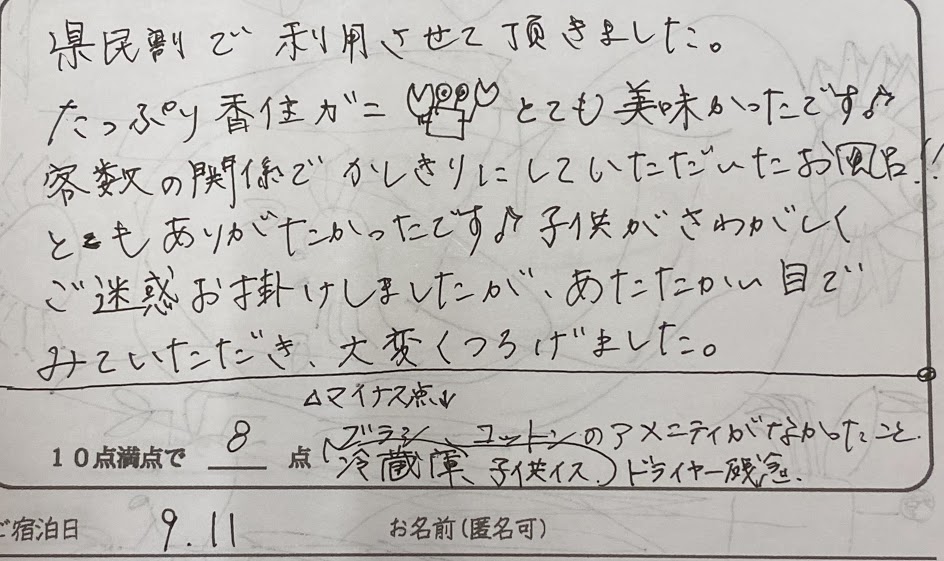 県民割で利用させて頂きました。
たっぷり香住ガニとても美味かったです♪
客数の関係でかしきりにしていただいたお風呂!!
とてもありがたかったです♪子供がさわがしく
ご迷惑お掛けしましたが、あたたかい目で
みていただき、大変くつろげました。
△マイナス点↓
ブラシ、コットンのアメニティがなかったこと.
10点満点で 8 点 (冷蔵庫、子供イス.)ドライヤー残念.
ご宿泊日 9.11 お名前(匿名可)